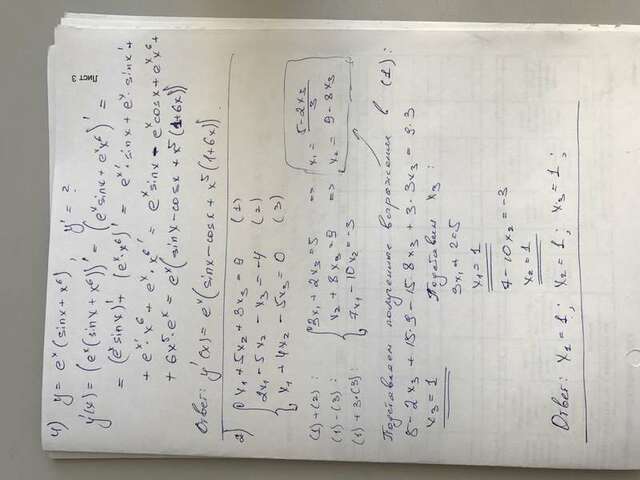 Лист 3
4) y = eˣ(sinx + x⁶), y' = ?
y'(x) = (eˣ(sinx + x⁶))' = (eˣsinx + eˣx⁶)' =
= (eˣsinx)' + (eˣ·x⁶)' = eˣ'·sinx + eˣ·sinx' +
+ eˣ'·x⁶ + eˣ·x⁶' = eˣsinx - eˣcosx + eˣx⁶ +
+ 6x⁵·eˣ = eˣ(sinx - cosx + x⁵(1+6x))
Ответ: y'(x) = eˣ(sinx - cosx + x⁵(1+6x))
2) { x₁ + 5x₂ + 3x₃ = 9 (1)
2x₁ - 5x₂ - x₃ = -4 (2)
x₁ + 4x₂ - 5x₃ = 0 (3)
(1)+(2): { 3x₁ + 2x₃ = 5 => x₁ = (5-2x₃)/3
(1)-(3): x₂ + 8x₃ = 9 => x₂ = 9 - 8x₃
(1)+3·(3): 7x₁ - 10x₂ = -3
Подставляем полученные выражения в (1):
5 - 2x₃ + 15·9 - 15·8x₃ + 3·3x₃ = 9·3
x₃ = 1 Подставим x₃:
3x₁ + 2 = 5
x₁ = 1
7 - 10x₂ = -3
x₂ = 1
Ответ: x₁ = 1; x₂ = 1; x₃ = 1;